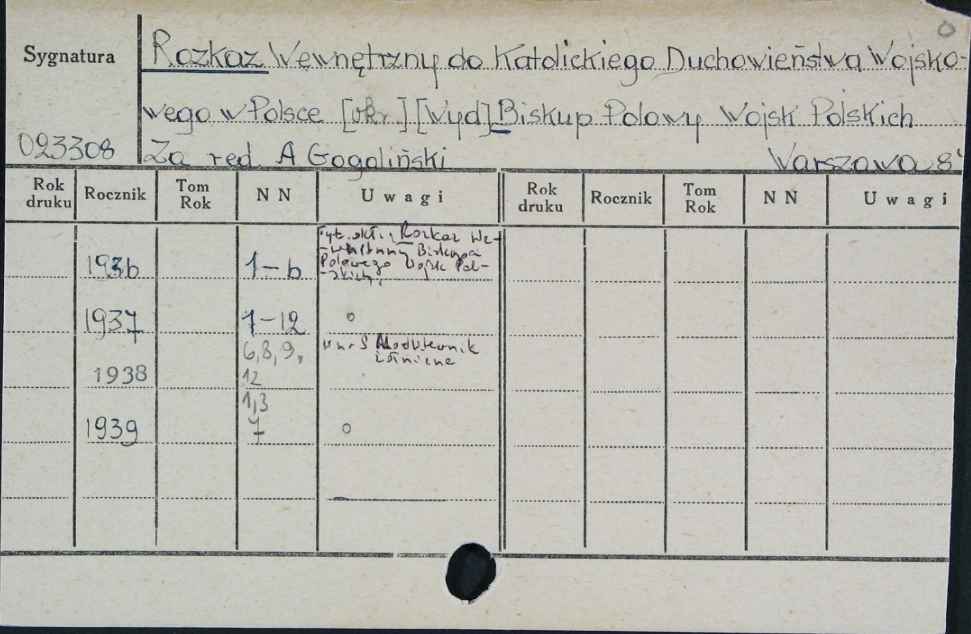 Sygnatura
Rozkaz Wewnętrzny do Katolickiego Duchowieństwa Wojsko-
wego w Polsce [okr.] [Wyd] Biskup Polowy Wojsk Polskich
093308 Za red. A Gogoliński Warszawa 8°
Rok druku Rocznik Tom Rok NN Uwagi Rok druku Rocznik Tom Rok NN Uwagi
Tyt. okł.: Rozkaz We-
-wnętrzny Biskupa
1936 1-6 Polowego Wojsk Pol-
-skich.
1937 1-12 o
6,8,9, w nr 8
1938 12
1,3
1939 7 o